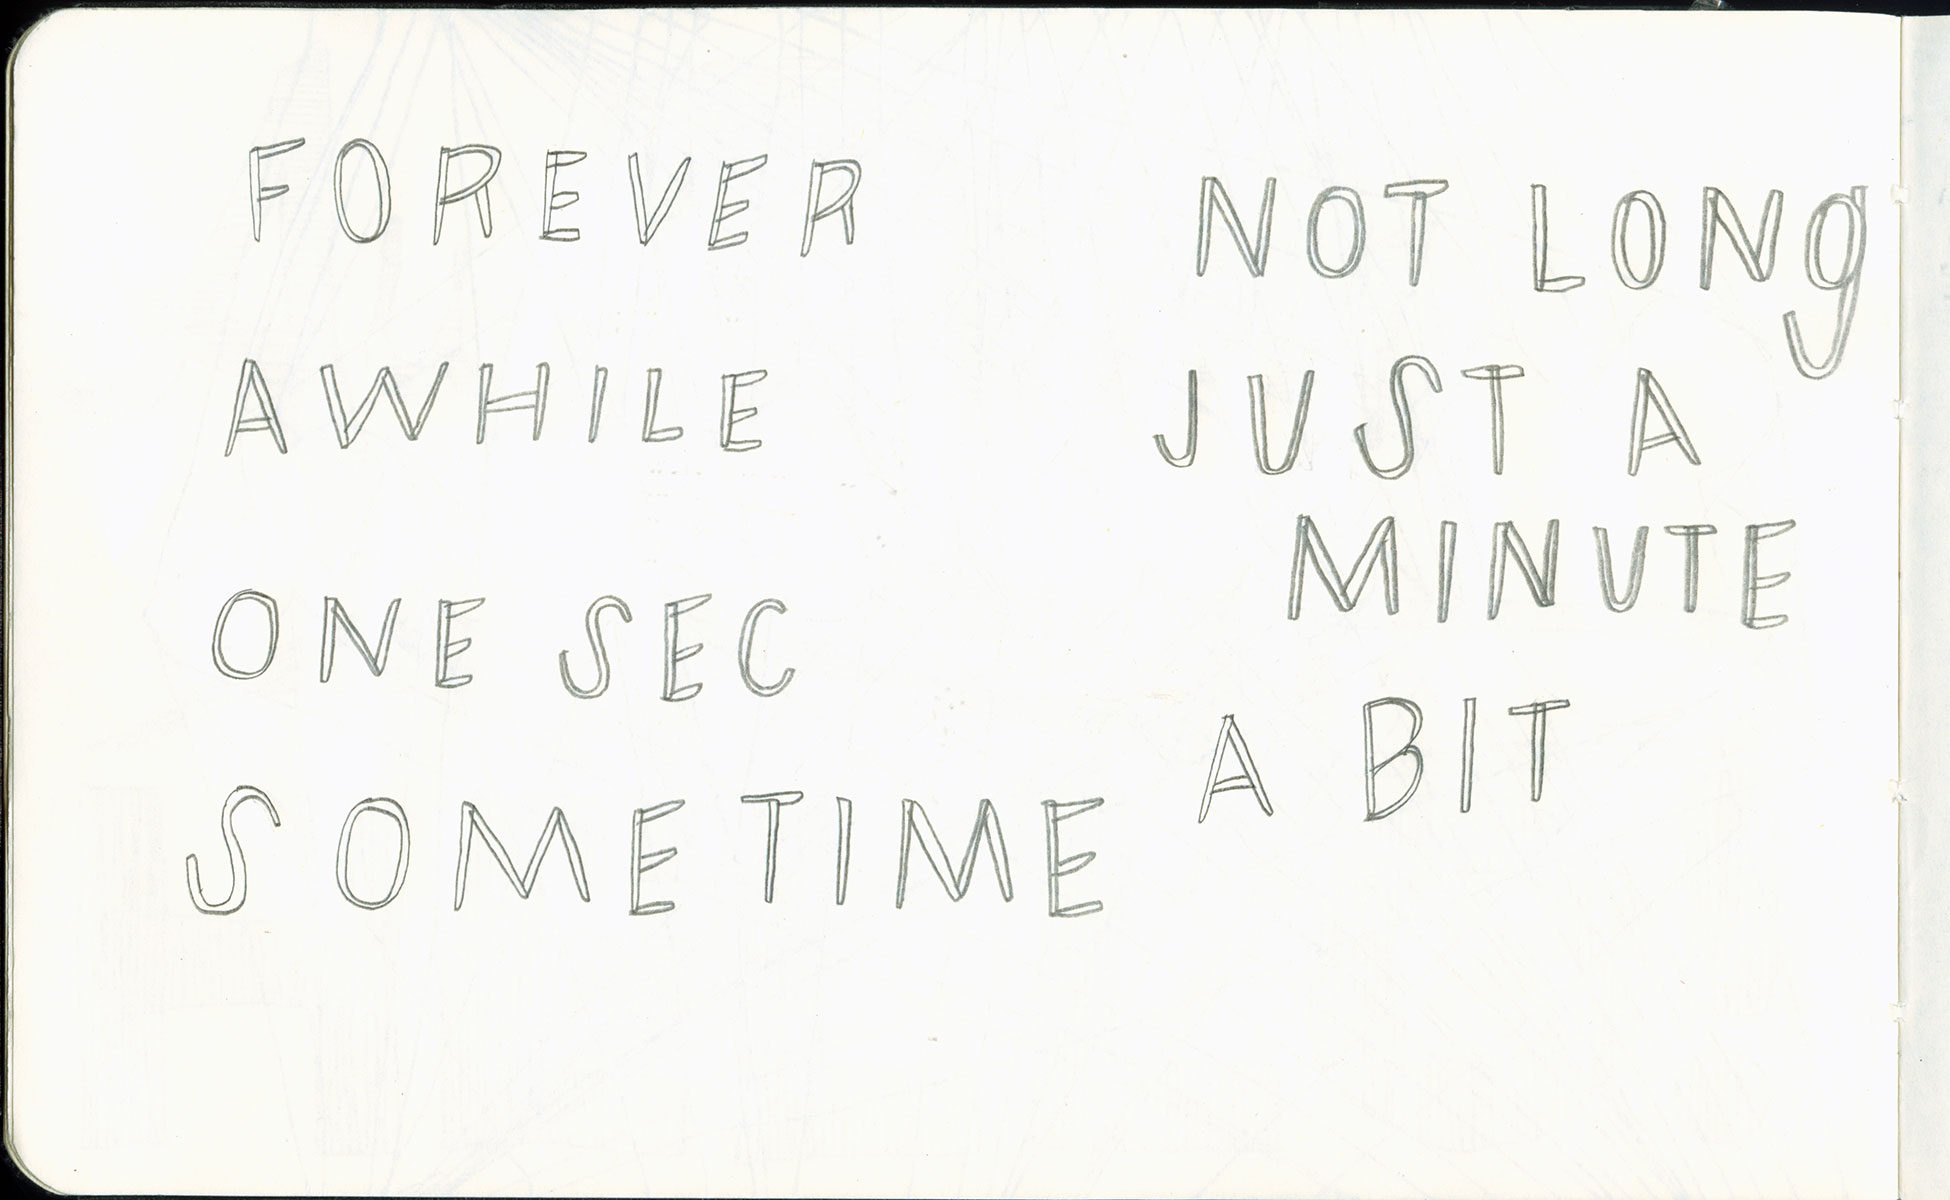 FOREVER
AWHILE
ONE SEC
SOMETIME
NOT LONg
JUST A
MINUTE
A BIT